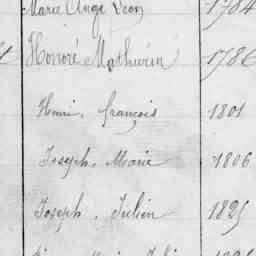 Marie Ange Léon 1784
Honoré Mathurin 1786
Henri, françois 1801
Joseph, Marie 1806
Joseph, Julien 1825